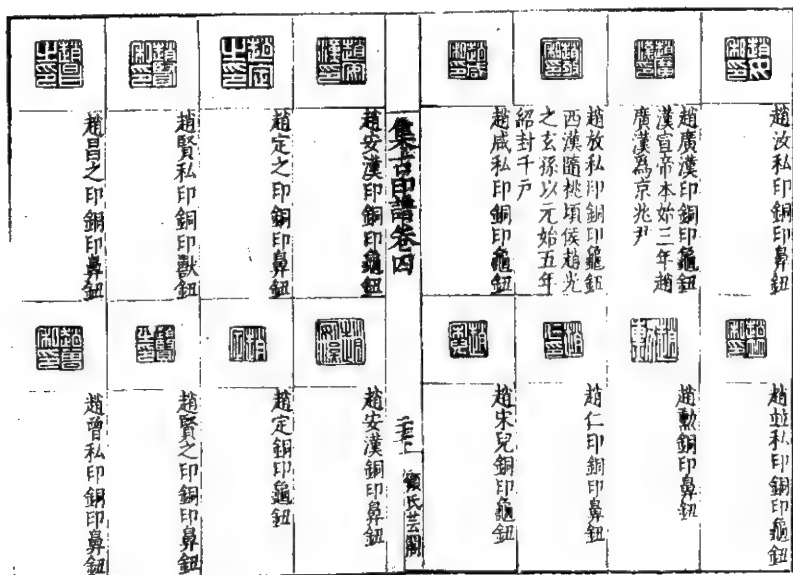 趙汝私印銅印鼻鈕
趙廣漢印銅印龜鈕
漢宣帝本始三年趙
廣漢爲京兆尹
趙放私印銅印龜鈕
西漢隨桃頃侯趙光
之玄孫以元始五年
紹封千戶
趙咸私印銅印龜鈕
趙竝私印銅印龜鈕
趙勲銅印鼻鈕
趙仁印銅印鼻鈕
趙宋兒銅印龜鈕
集古印譜卷四
顧氏芸閣
趙安漢印銅印龜鈕
趙定之印銅印鼻鈕
趙賢私印銅印獸鈕
趙昌之印銅印鼻鈕
趙安漢銅印鼻鈕
趙定銅印龜鈕
趙賢之印銅印鼻鈕
趙曾私印銅印鼻鈕